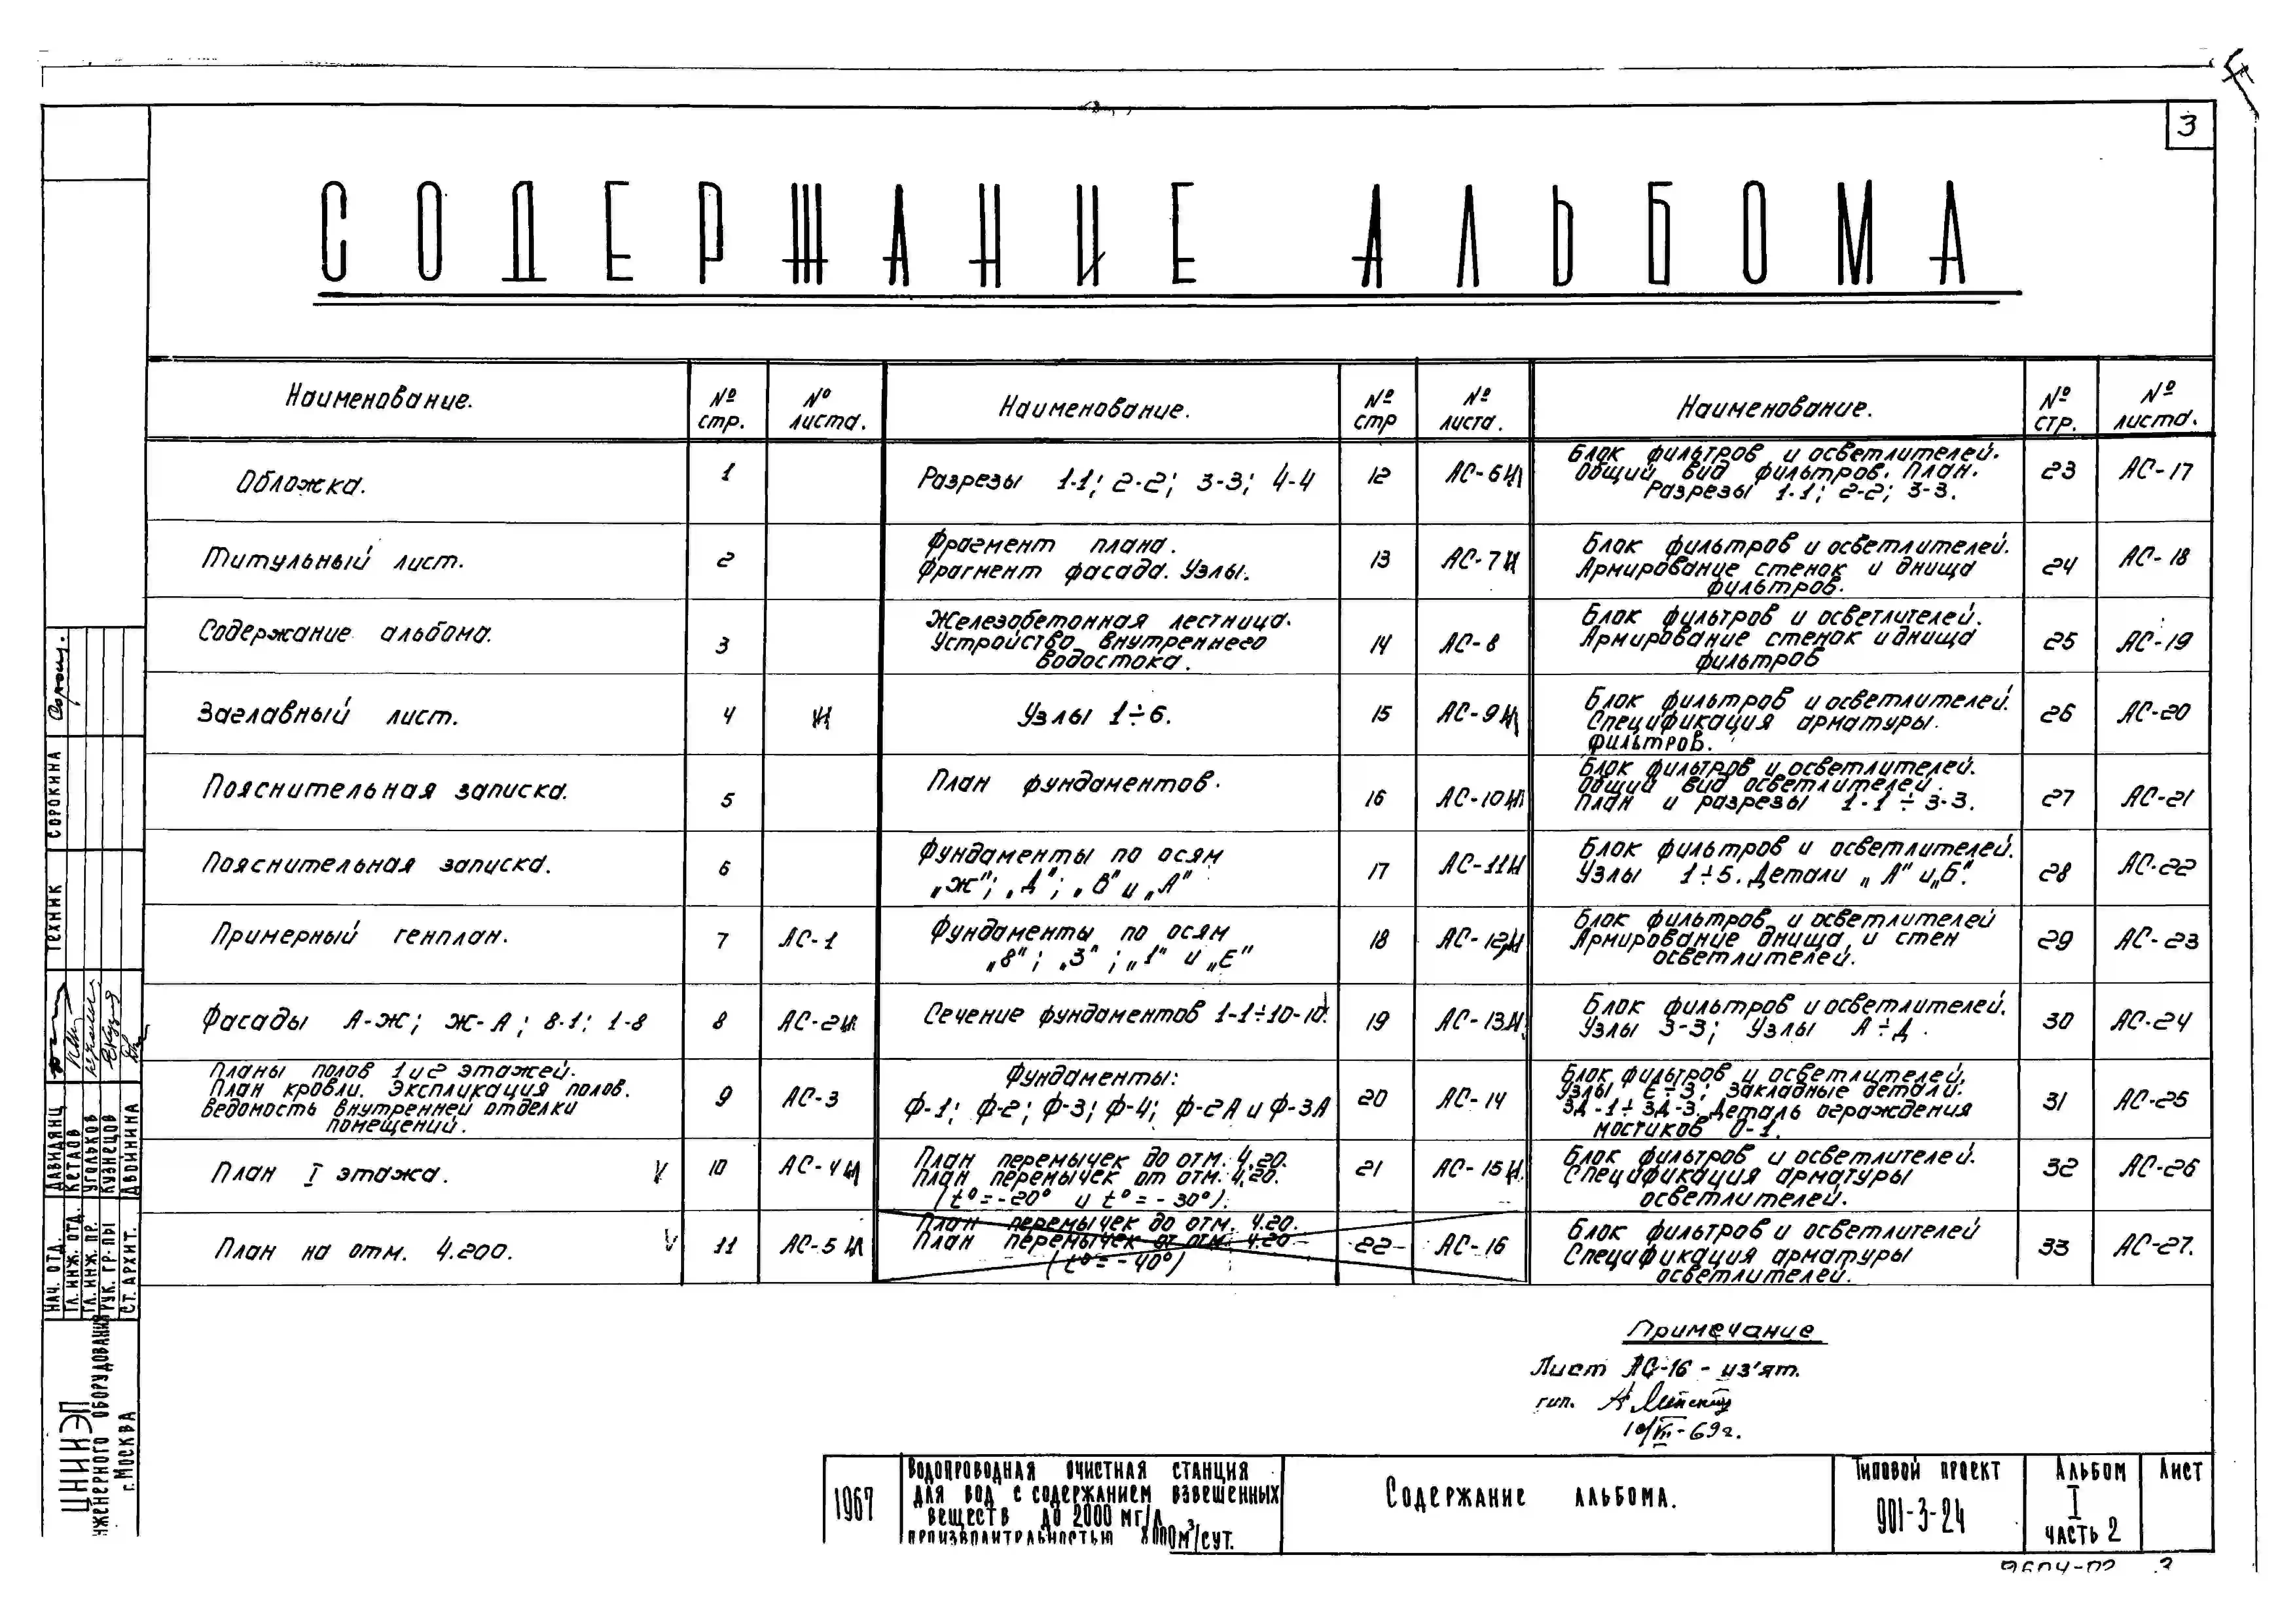 3
СОДЕРЖАНИЕ АЛЬБОМА
Наименование. № стр. № листа.
Обложка. 1
Титульный лист. 2
Содержание альбома. 3
Заглавный лист. 4 И
Пояснительная записка. 5
Пояснительная записка. 6
Примерный генплан. 7 АС-1
Фасады А-Ж; Ж-А; 8-1; 1-8 8 АС-2И
Планы полов 1 и 2 этажей.
План кровли. Экспликация полов. 9 АС-3
Ведомость внутренней отделки
помещений.
План I этажа. V 10 АС-4И
План на отм. 4.200. V 11 АС-5И
Наименование. № стр № листа.
Разрезы 1-1; 2-2; 3-3; 4-4 12 АС-6И
Фрагмент плана.
Фрагмент фасада. Узлы. 13 АС-7И
Железобетонная лестница.
Устройство внутреннего 14 АС-8
водостока.
Узлы 1÷6. 15 АС-9И
План фундаментов. 16 АС-10И
Фундаменты по осям
„Ж"; „Д"; „В" и „А" 17 АС-11И
Фундаменты по осям
„8"; „3"; „1" и „Е" 18 АС-12И
Сечение фундаментов 1-1÷10-10. 19 АС-13И
Фундаменты:
Ф-1; Ф-2; Ф-3; Ф-4; Ф-2А и Ф-3А 20 АС-14
План перемычек до отм. 4.20.
План перемычек от отм. 4.20. 21 АС-15И
(t°=-20° и t°=-30°).
План перемычек до отм. 4.20.
План перемычек от отм. 4.20 22 АС-16
(t°=-40°)
Наименование. № стр. № листа.
Блок фильтров и осветлителей.
Общий вид фильтров. План. 23 АС-17
Разрезы 1-1; 2-2; 3-3.
Блок фильтров и осветлителей.
Армирование стенок и днища 24 АС-18
фильтров.
Блок фильтров и осветлителей.
Армирование стенок и днища 25 АС-19
фильтров
Блок фильтров и осветлителей.
Спецификация арматуры 26 АС-20
фильтров.
Блок фильтров и осветлителей.
Общий вид осветлителей.
План и разрезы 1-1÷3-3. 27 АС-21
Блок фильтров и осветлителей.
Узлы 1÷5. Детали „А" и „Б". 28 АС-22
Блок фильтров и осветлителей
Армирование днища и стен 29 АС-23
осветлителей.
Блок фильтров и осветлителей.
Узлы 3-3; Узлы А÷Д. 30 АС-24
Блок фильтров и осветлителей.
Узлы Е÷З; Закладные детали.
ЗД-1÷ЗД-3. Деталь ограждения 31 АС-25
мостиков О-1.
Блок фильтров и осветлителей.
Спецификация арматуры 32 АС-26
осветлителей.
Блок фильтров и осветлителей
Спецификация арматуры 33 АС-27.
осветлителей.
Примечание
Лист АС-16 - из'ят.
гип.
10/VII-69г.
1967
Водопроводная очистная станция
для вод с содержанием взвешенных
веществ до 2000 мг/л
производительностью 8000м³/сут.
Содержание альбома.
Типовой проект
901-3-24
Альбом
I
часть 2
Лист
9604-02 3
ТЕХНИК СОРОКИНА
НАЧ. ОТД. ДАВИДЯНЦ
ГЛ. ИНЖ. ОТД. КЕТАОВ
ГЛ. ИНЖ. ПР. УГОЛЬКОВ
РУК. ГР-ПЫ КУЗНЕЦОВ
СТ. АРХИТ. ДВОЙНИНА
ЦНИИЭП
ИНЖЕНЕРНОГО ОБОРУДОВАНИЯ
г. МОСКВА